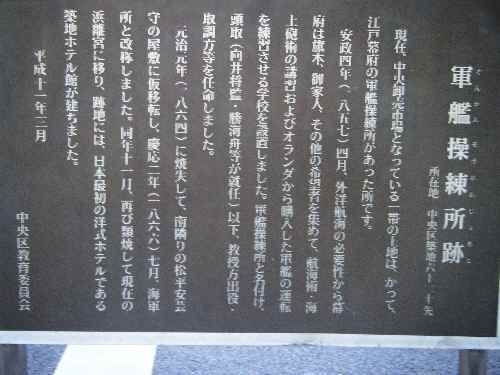 軍艦操練所跡
ぐんかんそうれんじょあと
所在地 中央区築地六―二十先
現在、中央卸売市場となっている一帯の土地は、かつて、
江戸幕府の軍艦操練所があった所です。
安政四年(一八五七)四月、外洋航海の必要性から幕
府は旗本、御家人、その他の希望者を集めて、航海術・海
上砲術の講習およびオランダから購入した軍艦の運転
を練習させる学校を設置しました。軍艦操練所と名付け、
頭取(向井将監・勝海舟等が就任)以下、教授方出役・
取調方等を任命しました。
元治元年(一八六四)に焼失して、南隣りの松平安芸
守の屋敷に仮移転し、慶応二年(一八六六)七月、海軍
所と改称しました。同年十一月、再び類焼して現在の
浜離宮に移り、跡地には、日本最初の洋式ホテルである
築地ホテル館が建ちました。
平成十一年三月
中央区教育委員会